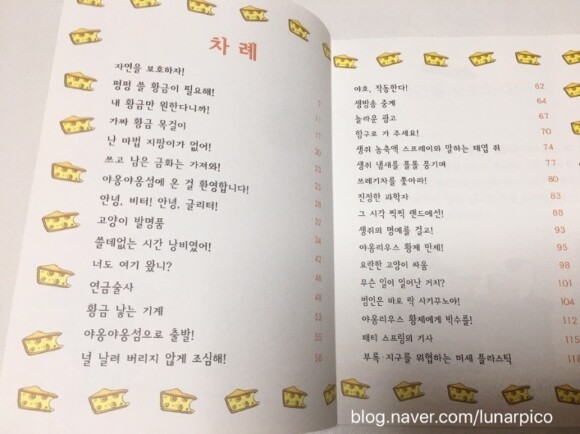 차 례
자연을 보호하자!
펑펑 쓸 황금이 필요해! 7
내 황금만 원한다니까! 11
가짜 황금 목걸이
난 마법 지팡이가 없어!
쓰고 남은 금화는 가져와!
야옹야옹섬에 온 걸 환영합니다!
안녕, 비터! 안녕, 글리터!
고양이 발명품
쓸데없는 시간 낭비였어!
너도 여기 왔니? 42
연금술사 46
황금 낳는 기계 48
야옹야옹섬으로 출발! 55
널 날려 버리지 않게 조심해! 58
야호, 작동한다! 62
생방송 중계 64
놀라운 광고 67
항구로 가 주세요! 70
생쥐 농축액 스프레이와 말하는 태엽 쥐 74
생쥐 냄새를 폴폴 풍기며 77
쓰레기차를 쫓아라! 80
진정한 과학자 83
그 시각 찍찍 랜드에선! 88
생쥐의 명예를 걸고! 93
야옹리우스 황제 만세! 95
요란한 고양이 싸움 98
무슨 일이 일어난 거지? 101
범인은 바로 락 사키푸노야! 104
야옹리우스 황제에게 박수를! 112
패티 스프링의 기사
부록·지구를 위협하는 미세 플라스틱
blog.naver.com/lunarpico